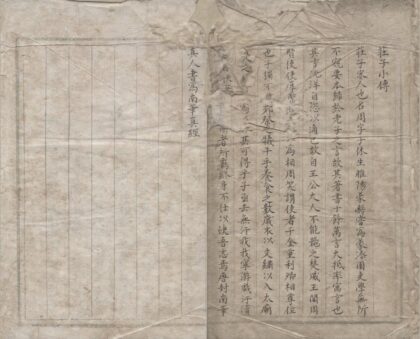 莊子小傳
莊子宋人也名周字子休生睢陽蒙縣嘗為蒙漆園吏學無所
不窺要本歸於老子之言故其著書十餘萬言大抵率寓言也
其言洸洋自恣以適己故自王公大人不能器之楚威王聞周
賢使使厚幣 為相周笑謂使者千金重利卿相尊位
也子獨不見郊祭之犧牛乎養食之數歲衣以文繡以入太廟
之時 其可得乎子亟去無汙我我寧游戲汙瀆
者所羈終身不仕以快吾志焉唐封南華
真人書為南華真經